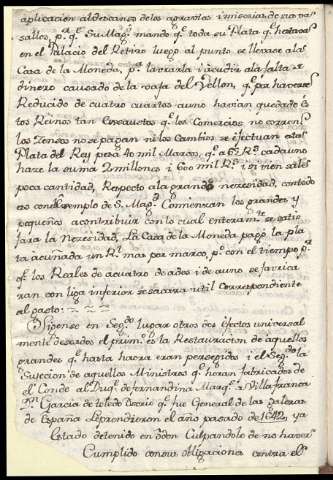 aplicacion al descanso de los agravios i miserias de sus va
sallos, p.r q.e Su Mag.d mandó q.e toda su Plata q.e estava
en el Palacio del Retiro luego al punto se llevase a la
Casa de la Moneda, p.a labrarla i acudir a la falta de
dinero causado de la vaja del Vellon, q.e por haverse
Reducido de cuatro cuartos a uno havian quedado es
tos Reinos tan Exsaustos q.e los Comercios no corren
los Zensos no se pagan ni los Cambios se efectuan esta
Plata del Rey pesa 40 mil Marcos, q.e a 65 R.s cada uno
haze la suma 2 millones i 600 mil R.s i si vien es
poca cantidad, Respecto a la grande nezesidad, con todo
eso con el exemplo de S. Mag.d Comienzan los grandes y
pequeños a contribuir con lo cual enteram.te se satis
fara la Nezesidad, La Casa de la Moneda pagó la pla
ta acuñada un R.l mas por marco, p.o con el tiempo p.r
q.e los Reales de a cuatro de a dos i de a uno se fabrica
ran con liga inferior se sacara util correspondiente
al gasto:
Siguense en Seg.do lugar otros dos efectos universal
mente deseados el prim.o es la Restauracion de aquellos
grandes q.e hasta hora eran perseguidos y el Seg.do la
Sugecion de aquellos Ministros q.e heran fabricados de
el Conde al Duq.e de fernandina Marq.s de Villa franca
D.n Garcia de toledo Osorio q.e fue General de las Galeras
de España le prendieron el año pasado de 1642, y a
Estado detenido en Odon Culpandole de no haver
Cumplido con su obligacion contra el